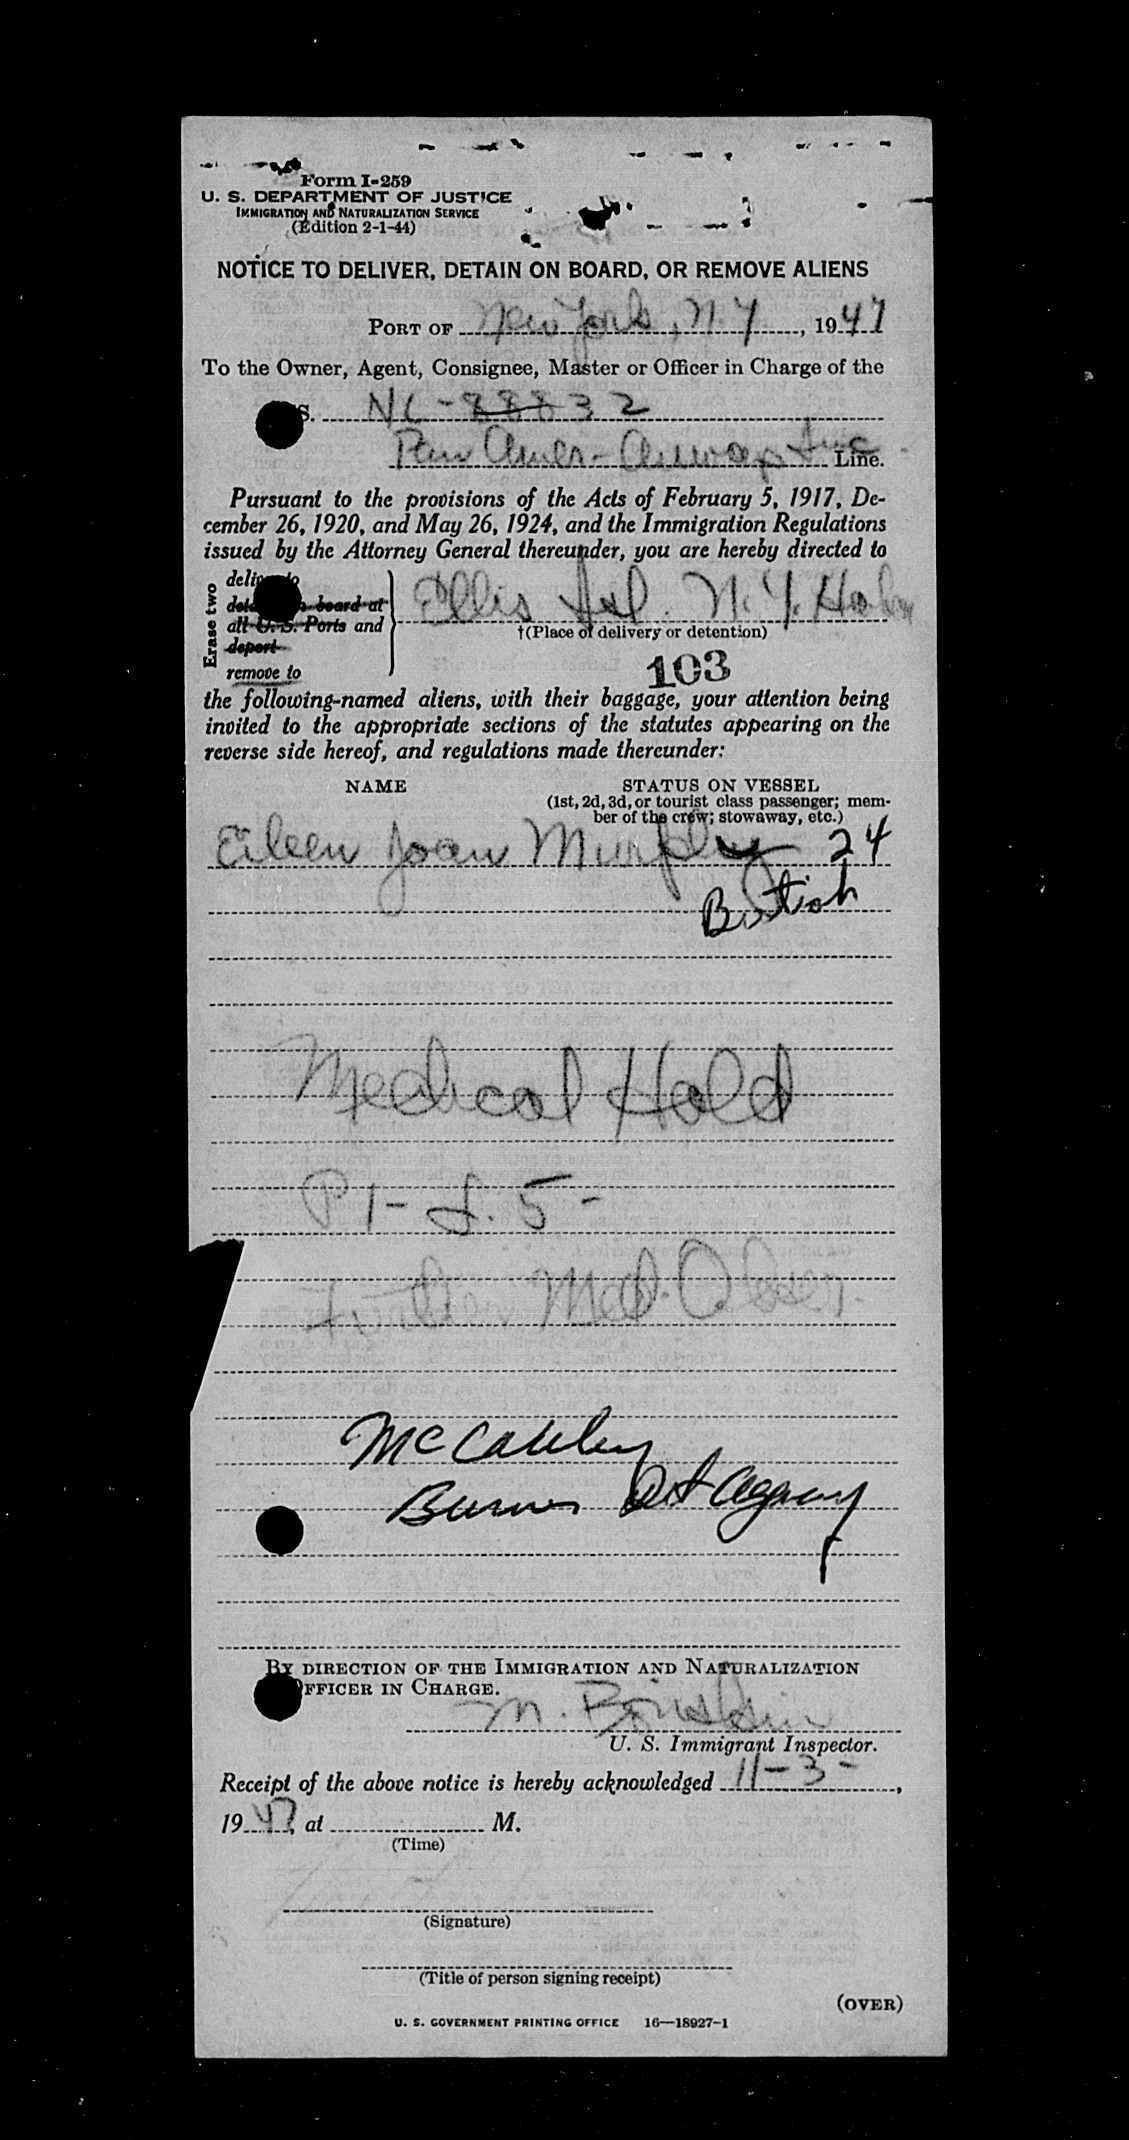 Form I-259
U. S. DEPARTMENT OF JUSTICE
IMMIGRATION AND NATURALIZATION SERVICE
(Edition 2-1-44)
NOTICE TO DELIVER, DETAIN ON BOARD, OR REMOVE ALIENS
PORT OF New York, N.Y, 1947
To the Owner, Agent, Consignee, Master or Officer in Charge of the
S. NC-88832
Pan Amer-Airways Inc Line.
Pursuant to the provisions of the Acts of February 5, 1917, De-
cember 26, 1920, and May 26, 1924, and the Immigration Regulations
issued by the Attorney General thereunder, you are hereby directed to
Erase two
deliver to
board at
all U. S. Ports and
deport
remove to
Ellis Isl. N.Y. Harbor
†(Place of delivery or detention)
103
the following-named aliens, with their baggage, your attention being
invited to the appropriate sections of the statutes appearing on the
reverse side hereof, and regulations made thereunder:
NAME STATUS ON VESSEL
(1st, 2d, 3d, or tourist class passenger; mem-
ber of the crew; stowaway, etc.)
Eileen Joan Murphy 24
British
Medical Hold
P1-L.5-
Further Med. Observ.
Burns Det Agency
BY DIRECTION OF THE IMMIGRATION AND NATURALIZATION
OFFICER IN CHARGE.
M.
U. S. Immigrant Inspector.
Receipt of the above notice is hereby acknowledged 11-3-,
1947, at M.
(Time)
(Signature)
(Title of person signing receipt)
(OVER)
U. S. GOVERNMENT PRINTING OFFICE 16—18927-1